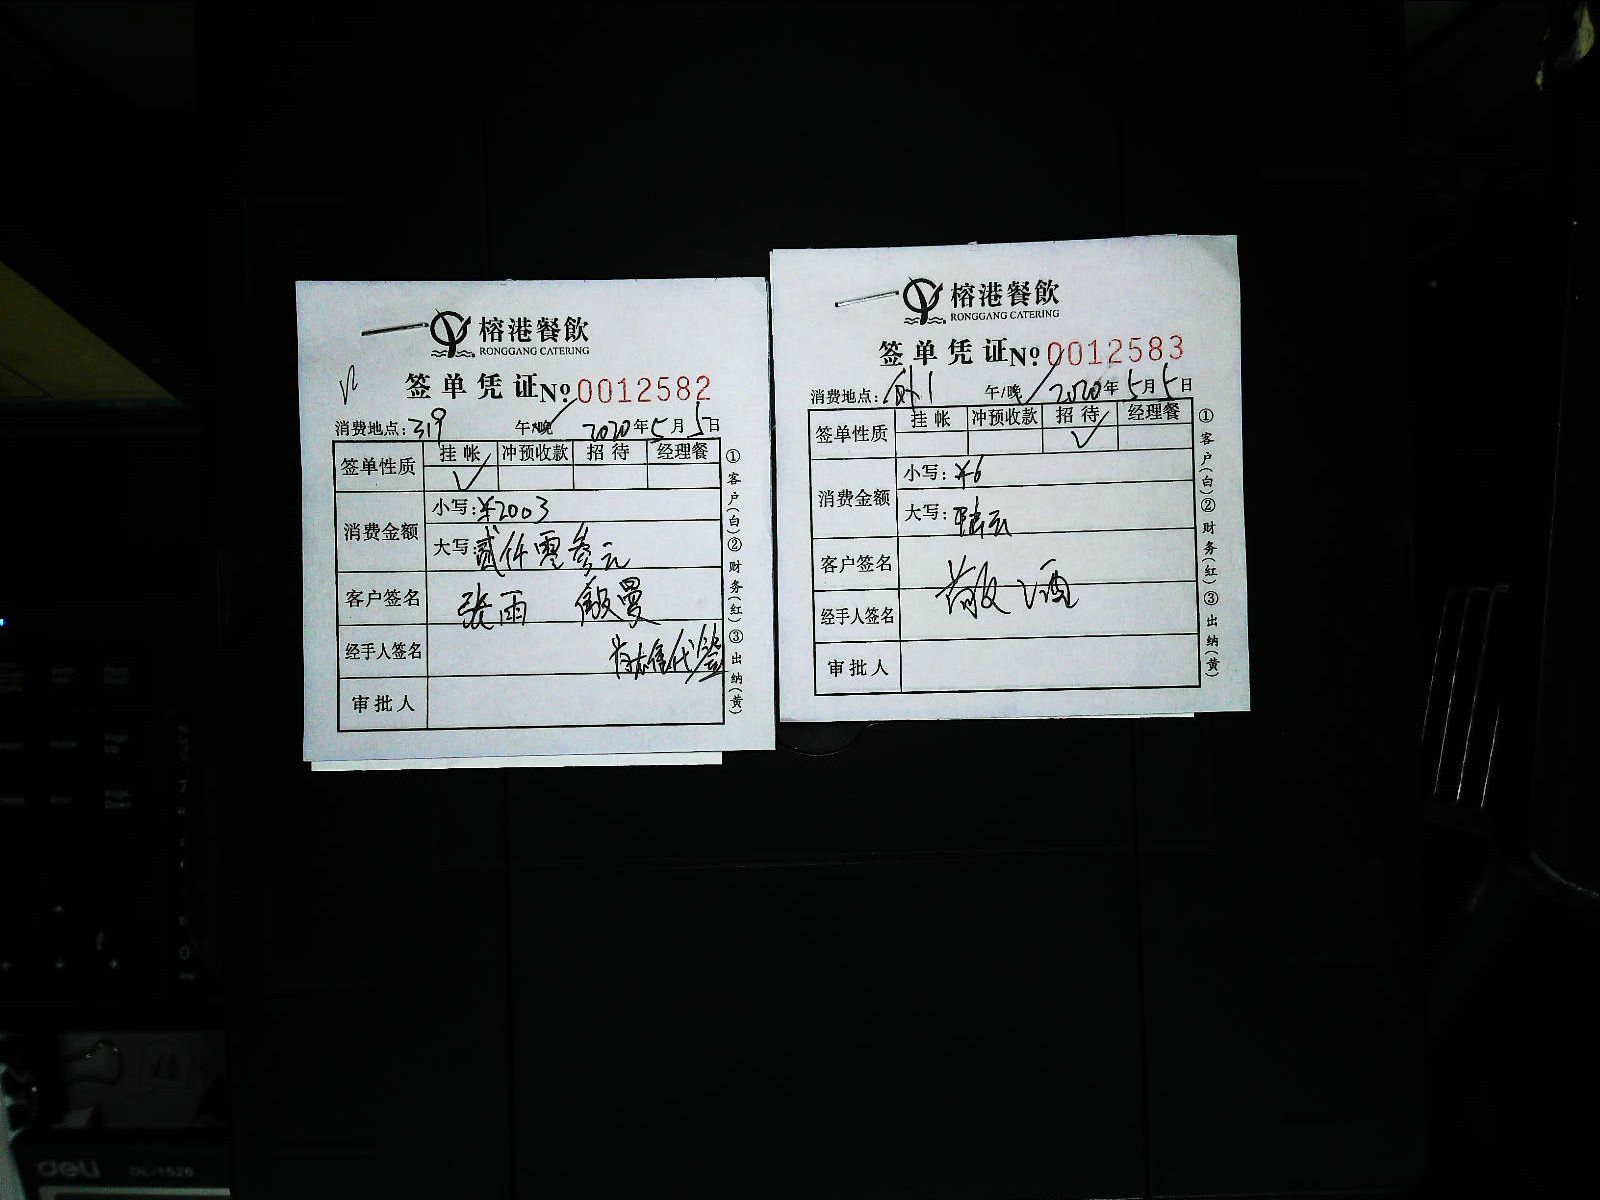 榕港餐飲
RONGGANG CATERING
签单凭证 № 0012582
消费地点: 319 午/晚 2020年5月5日
签单性质 挂帐 冲预收款 招待 经理餐
消费金额
小写: ¥2003
大写: 贰仟零叁元
客户签名 张雨
经手人签名 代签
审批人
①客户(白)②财务(红)③出纳(黄)
榕港餐飲
RONGGANG CATERING
签单凭证 № 0012583
消费地点: 午/晚 2020年5月5日
签单性质 挂帐 冲预收款 招待 经理餐
消费金额
小写: ¥6
大写: 陆元
客户签名
经手人签名 敬酒
审批人
①客户(白)②财务(红)③出纳(黄)
deli